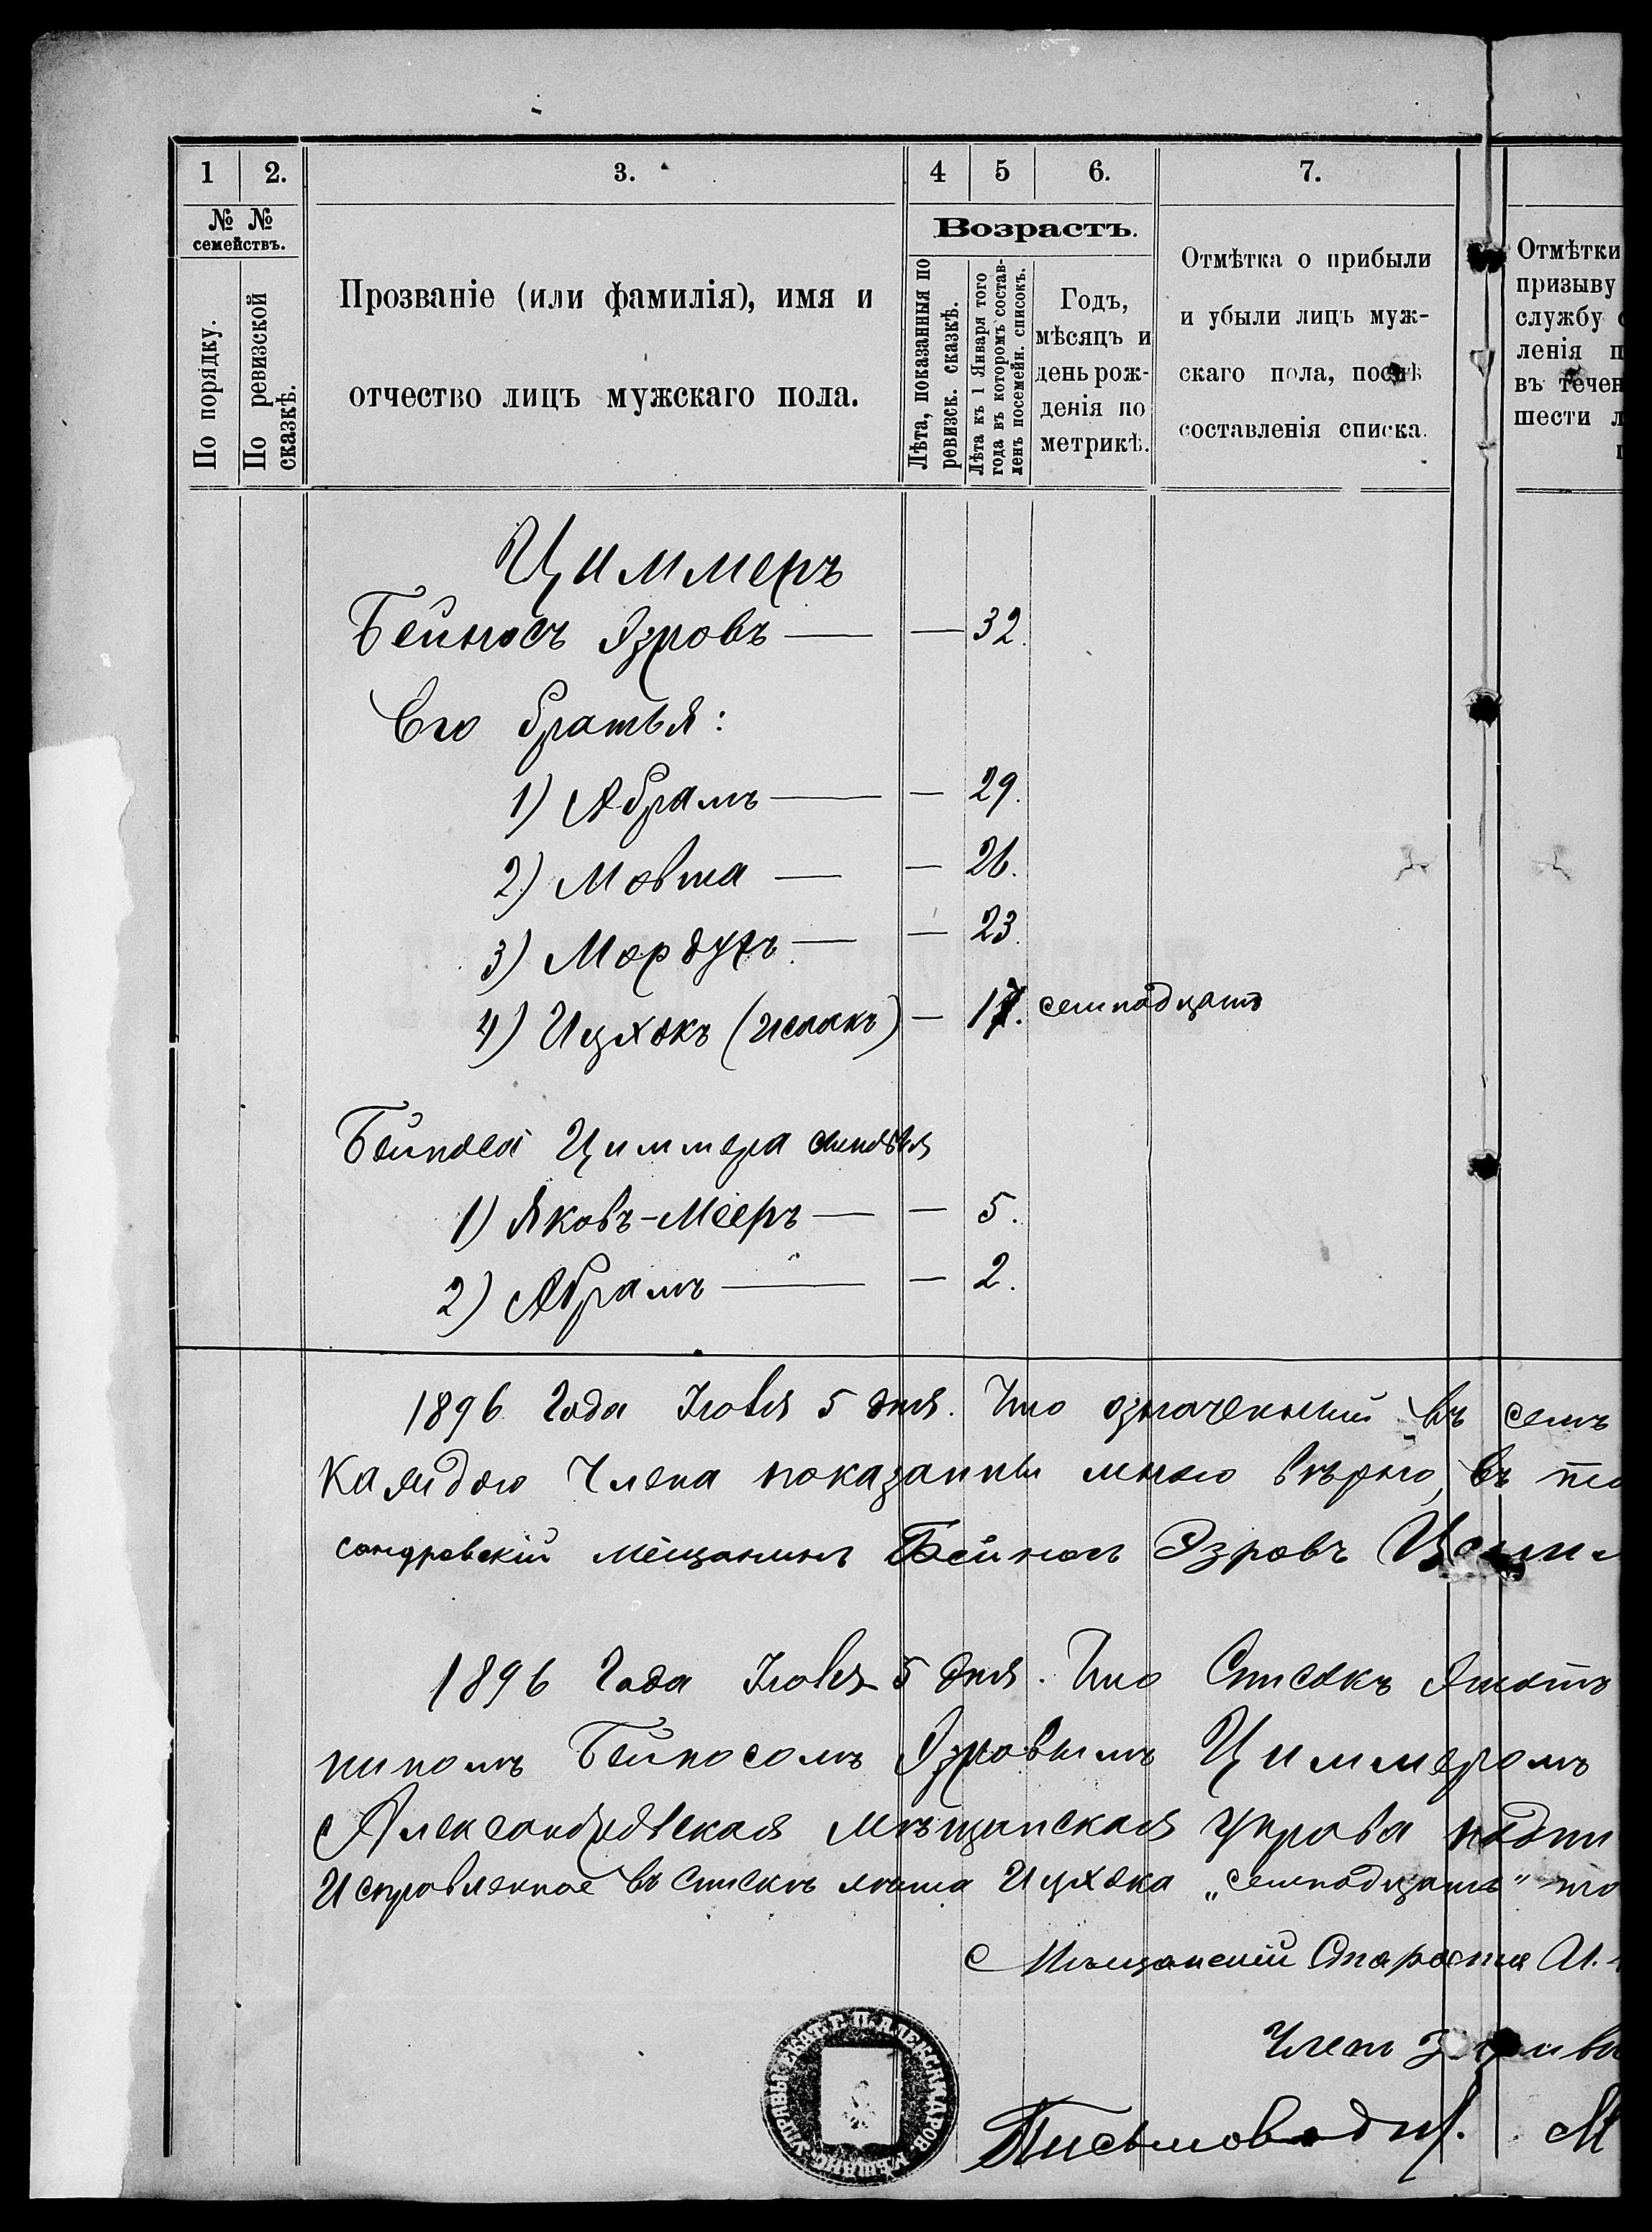 1 2. 3. 4 5 6. 7.
№ № семействъ.
По порядку.
По ревизской сказкѣ.
Прозваніе (или фамилія), имя и
отчество лицъ мужскаго пола.
Возрастъ.
Лѣта, показанныя по ревизск. сказкѣ.
Лѣта къ 1 Января того года въ которомъ составленъ посемейн. списокъ.
Годъ,
мѣсяцъ и
день рож-
денія по
метрикѣ.
Отмѣтка о прибыли
и убыли лицъ муж-
скаго пола, послѣ
составленія списка.
Отмѣтки
призыву
службу
ленія п
въ течен
шести л
Циммеръ
Бейносъ Эзровъ — — 32.
Его братья:
1) Абрамъ — — 29.
2) Мовша — — 26.
3) Мордухъ — — 23.
4) Ицхокъ (Исаакъ) — 17. семнадцать
Бейноса Циммера сыновья
1) Яковъ-Мееръ — — 5.
2) Абрамъ — — 2.
1896 Года Іюля 5 дня. Что означенный въ семъ
каждого Члена показанны мною вѣрно, въ то
сандровскій мѣщанинъ Бейносъ Эзровъ Цимм
1896 Года Іюля 5 дня. Что Списокъ этотъ
ниномъ Бейносомъ Эзровымъ Циммеромъ
Александровская Мѣщанская Управа подпи
Исправленное въ спискѣ лѣта Ицхока „семнадцать"
Мѣщанскій Староста И.
Членъ
Письмовод. М
УПРАВЫ ЕКАТ. Г. П. АЛЕКСАНДРОВ. МѢЩАНС.